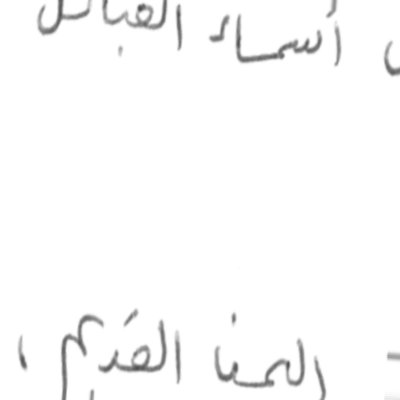 أسماء القبائل
اليمن القديم ،